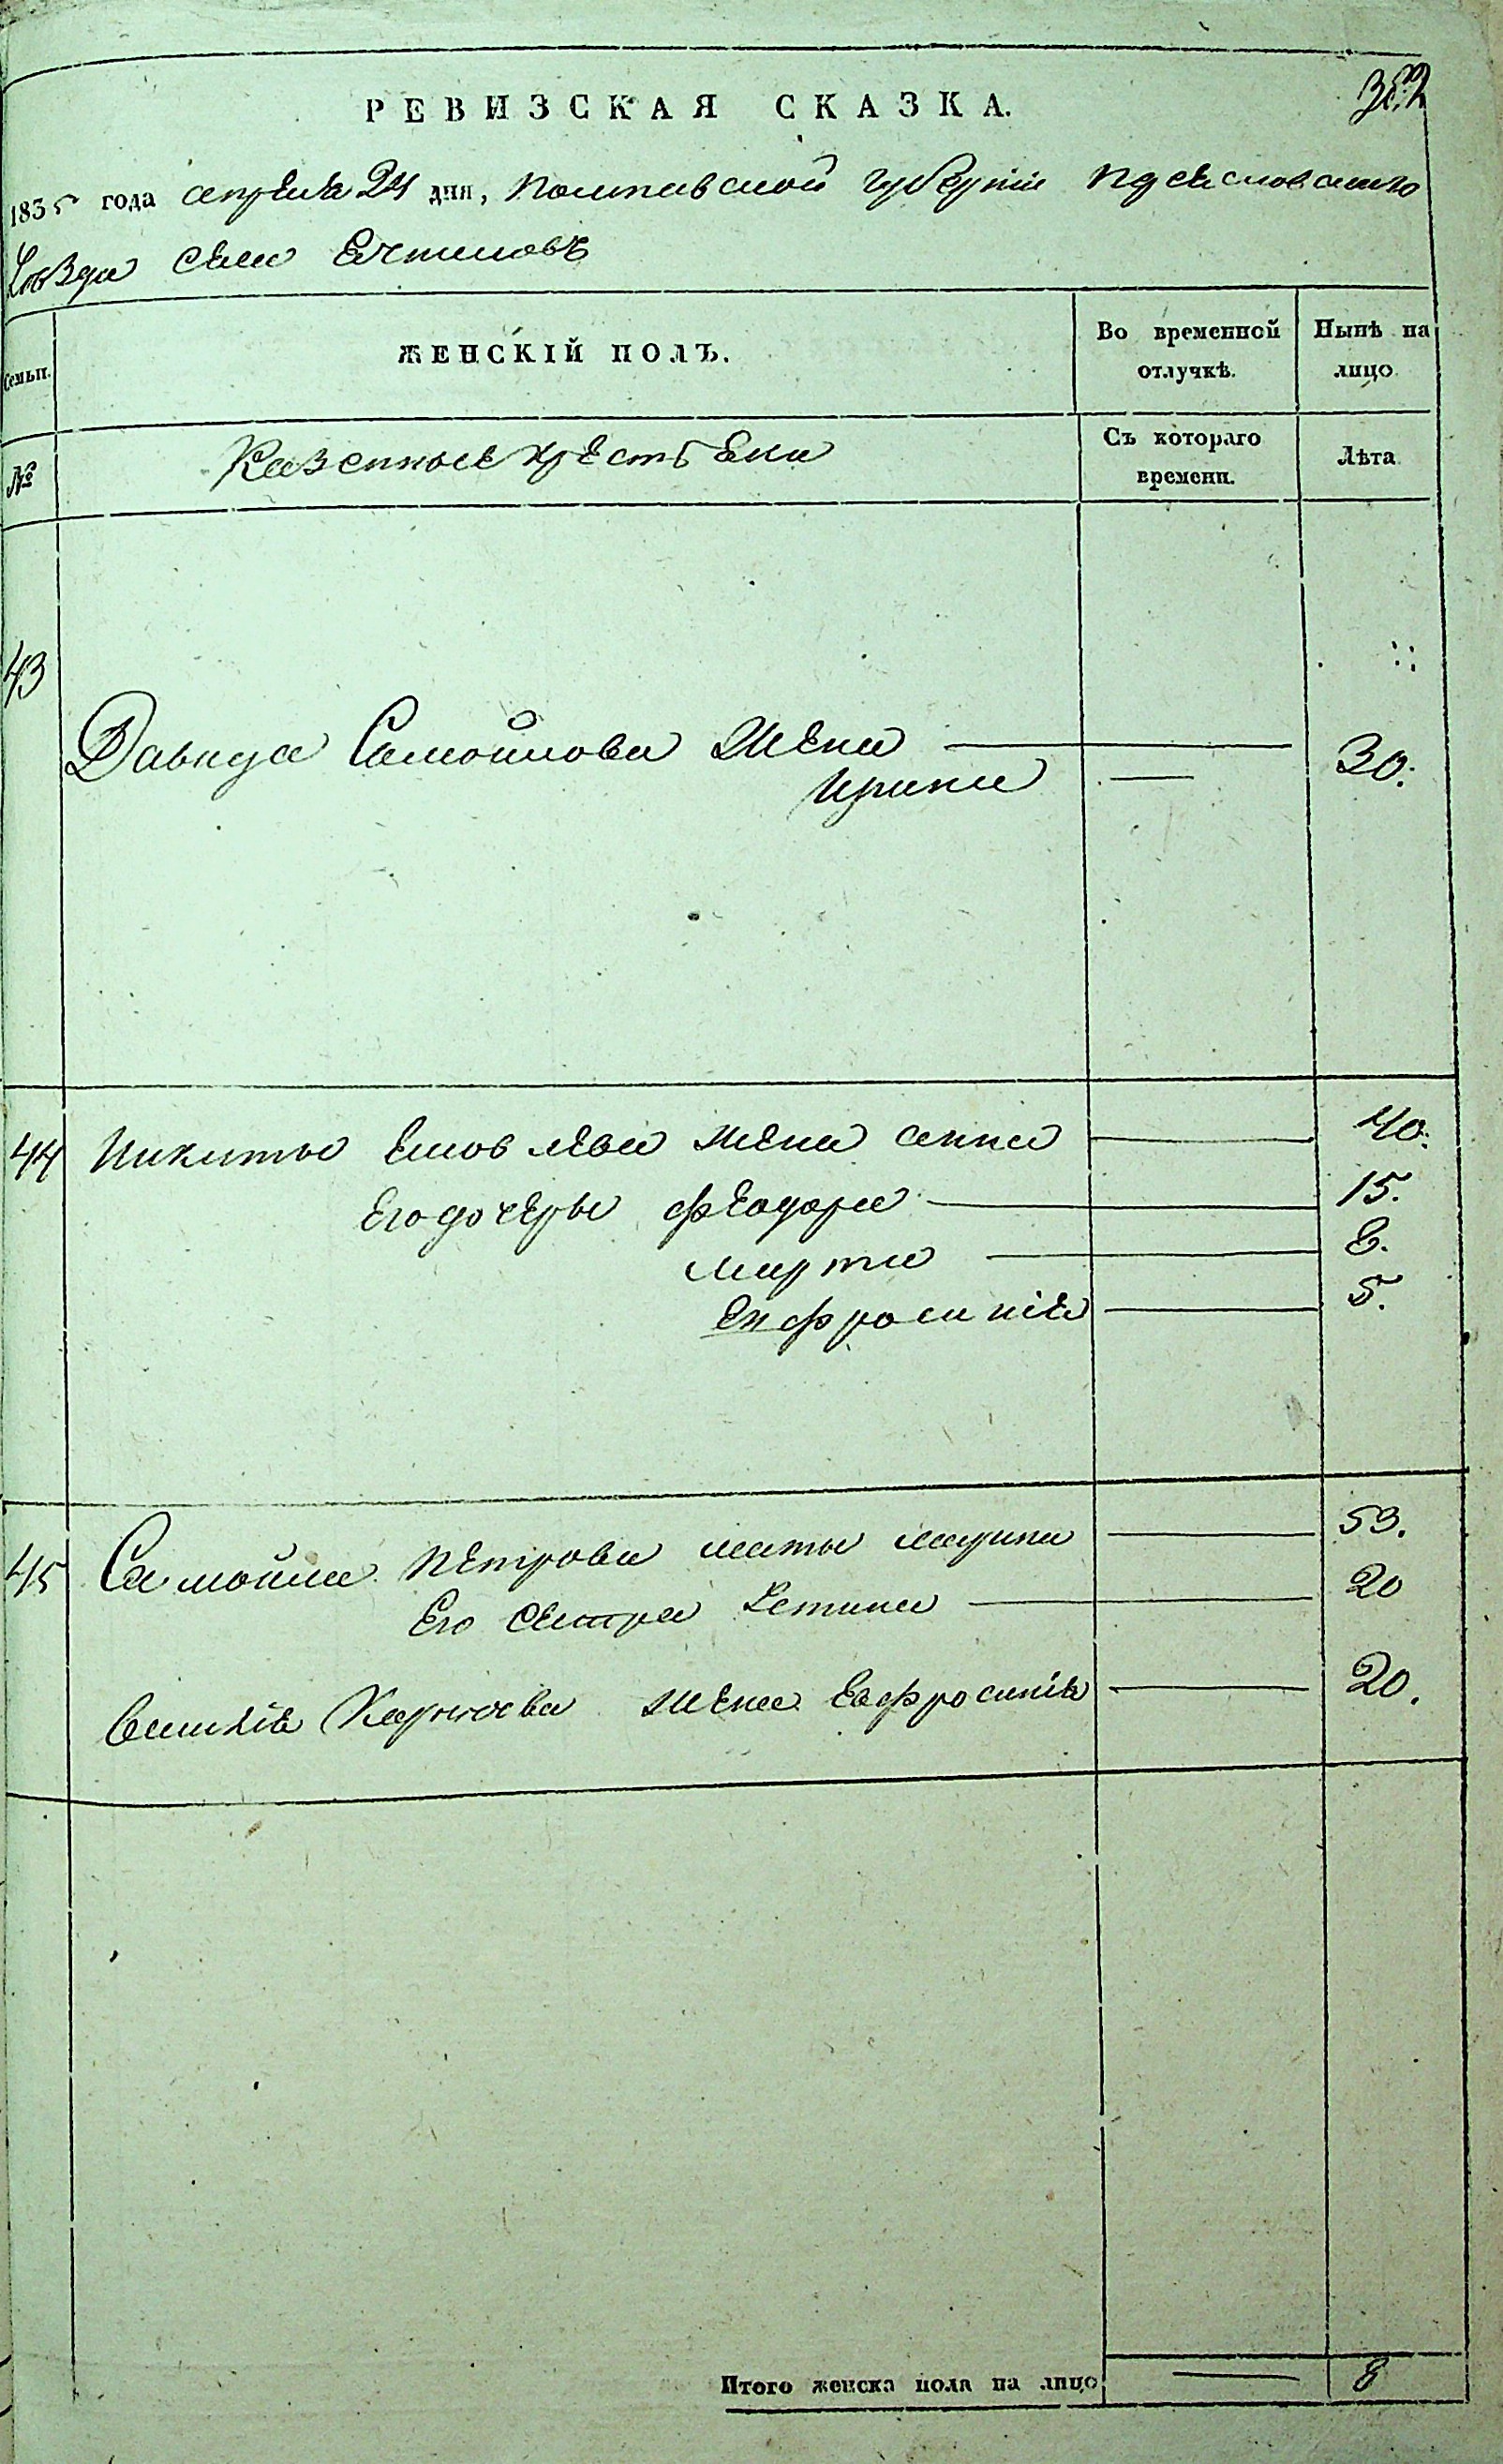 РЕВИЗСКАЯ СКАЗКА.
1835 года апреля 24 дня, Полтавской губернїи
уѣзда села
Семьи. ЖЕНСКІЙ ПОЛЪ. Во временной отлучкѣ. Нынѣ на лицо
№ Казенные крестьяни Съ котораго времени. Лѣта
43
Давида Самойлова жена
Ирина 30.
44 Никиты Яковлева жена анна 40.
Его дочеры феодора 15.
марта 8.
Евфросинія 5.
45 Самойла Петрова маты марина 53.
Его сестра 20
Василія жена Евфросинія 20.
Итого женска пола на лицо 8